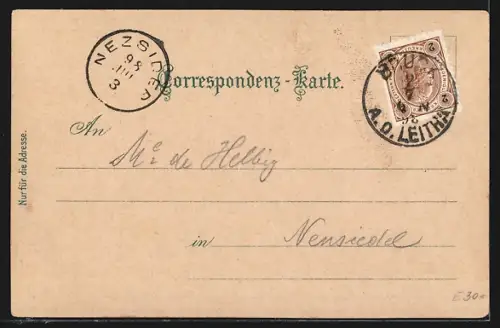 NEZSIDER
98
JUL
3
Correspondenz-Karte.
BRUCK
A.D. LEITHA
2
2
An
Mr de Helbig
in
Neusiedel
Nur für die Adresse.
E30.-